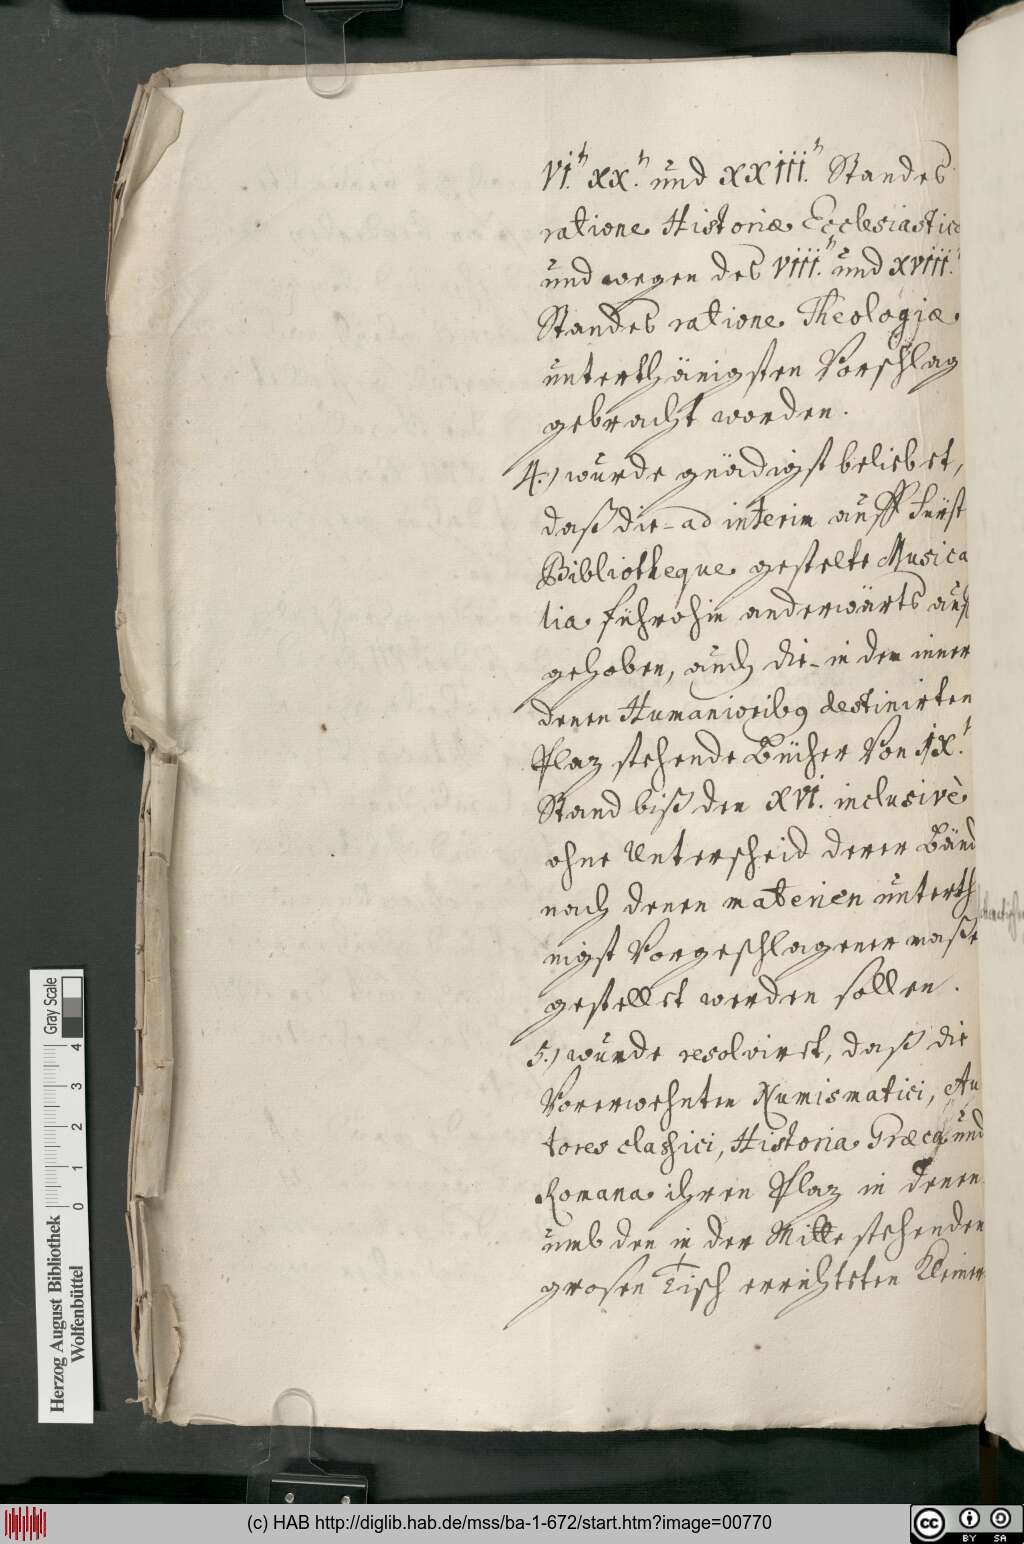 VI.ⁿ XX.ⁿ und XXIII.ⁿ Standes
ratione Historiæ Ecclesiastic
und wegen des VIII.ⁿ und XVIII.ⁿ
Standes ratione Theologiæ
unterthänigsten Vorschlag
gebracht worden.
4.) wurde gnädigst beliebet,
daß die-ad interim auff Fürst
Bibliotheque gestelte Musica
lia führohin anderwärts auf
gehoben, auch die-in den inner
denen Humanioribus destinirten
Plaz stehende Bücher von IX.ⁿ
Stand biß den XVI. inclusivè
ohne Unterscheid derer Bänd
nach denen materien unterth
nigst vorgeschlagener maße
gestellet werden sollen.
5.) wurde resolviret, daß die
vorerwehnten Numismatici, Au
tores classici, Historia Græca und
Romana ihren Plaz in denen
umb den in der Mitte stehenden
grosen Tisch errichteten kleiner
Gray Scale
0 1 2 3 4
Herzog August Bibliothek
Wolfenbüttel
(c) HAB http://diglib.hab.de/mss/ba-1-672/start.htm?image=00770
cc BY SA